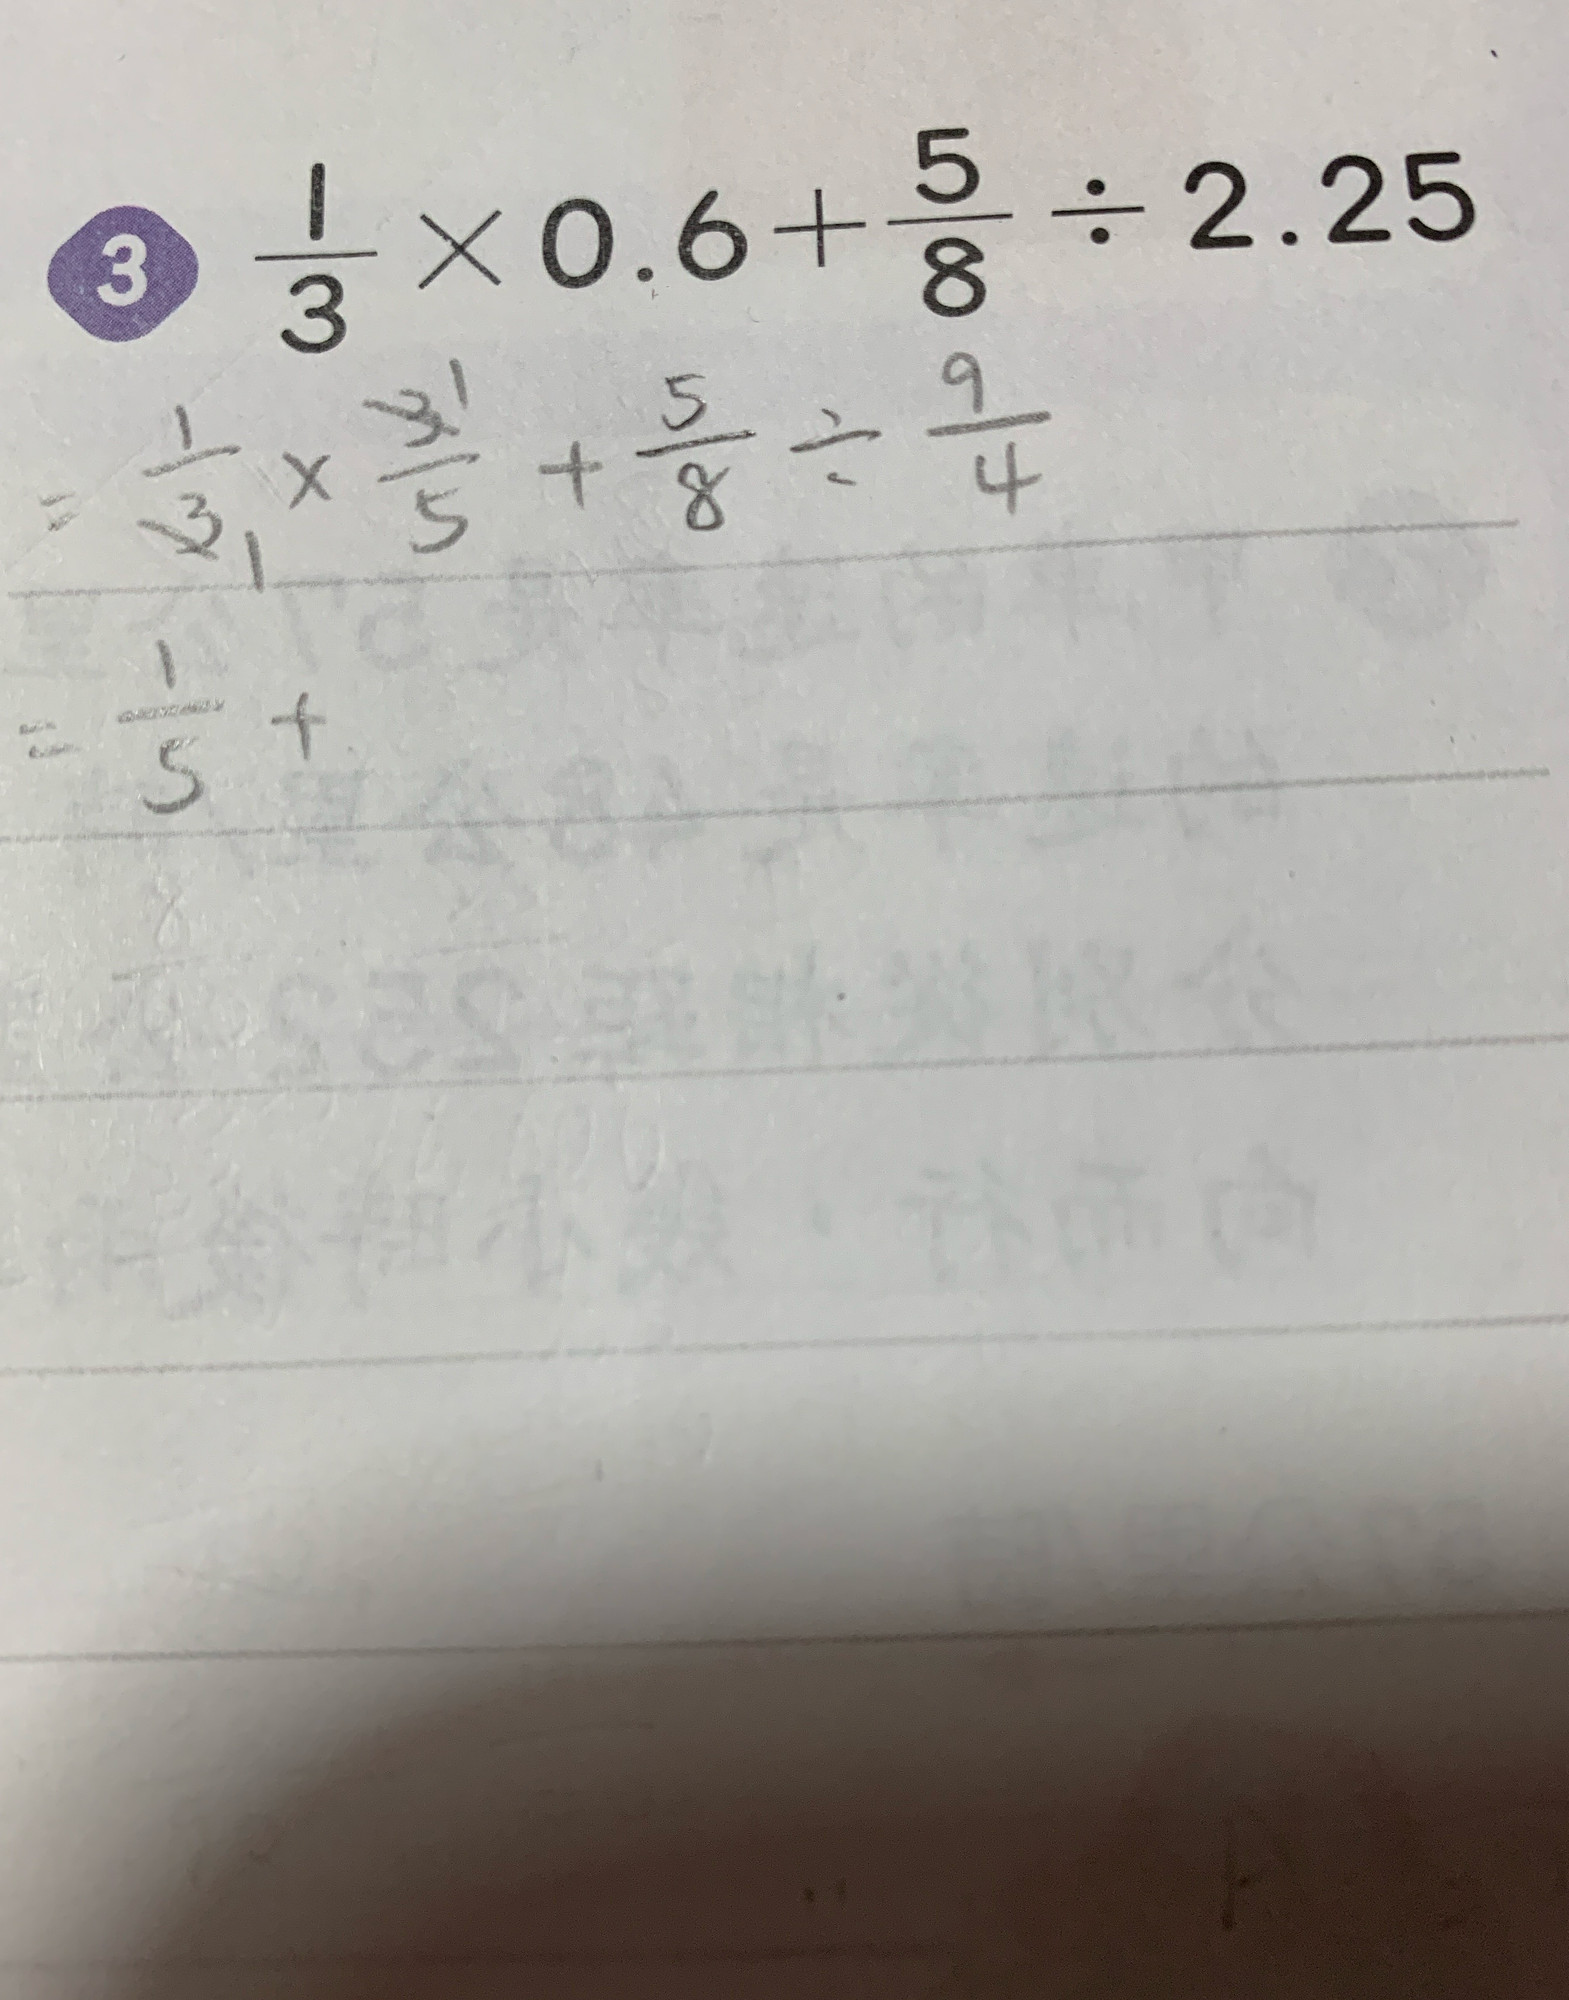 3 1/3 × 0.6 + 5/8 ÷ 2.25
= 1/3 1 × 3 1/5 + 5/8 ÷ 9/4
= 1/5 +